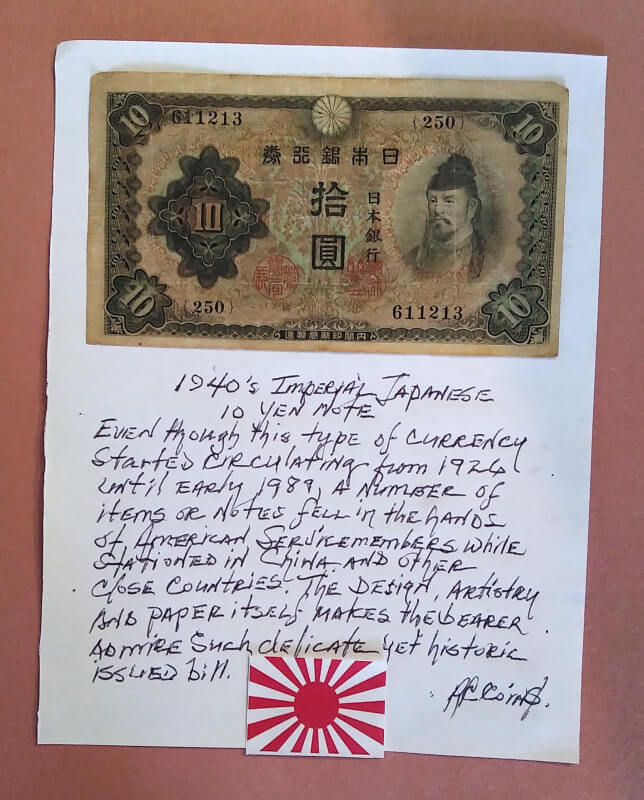 10 611213 {250} 10
券行銀本日
拾圓
日本銀行
10 {250} 611213 10
造製局刷印閣内
1940's Imperial Japanese
10 Yen Note
Even though this type of currency
started circulating from 1924
until early 1989, a number of
items or notes fell in the hands
of American servicemembers while
stationed in China and other
close countries. The design, artistry
and paper itself makes the bearer
admire such delicate yet historic
issued bill.